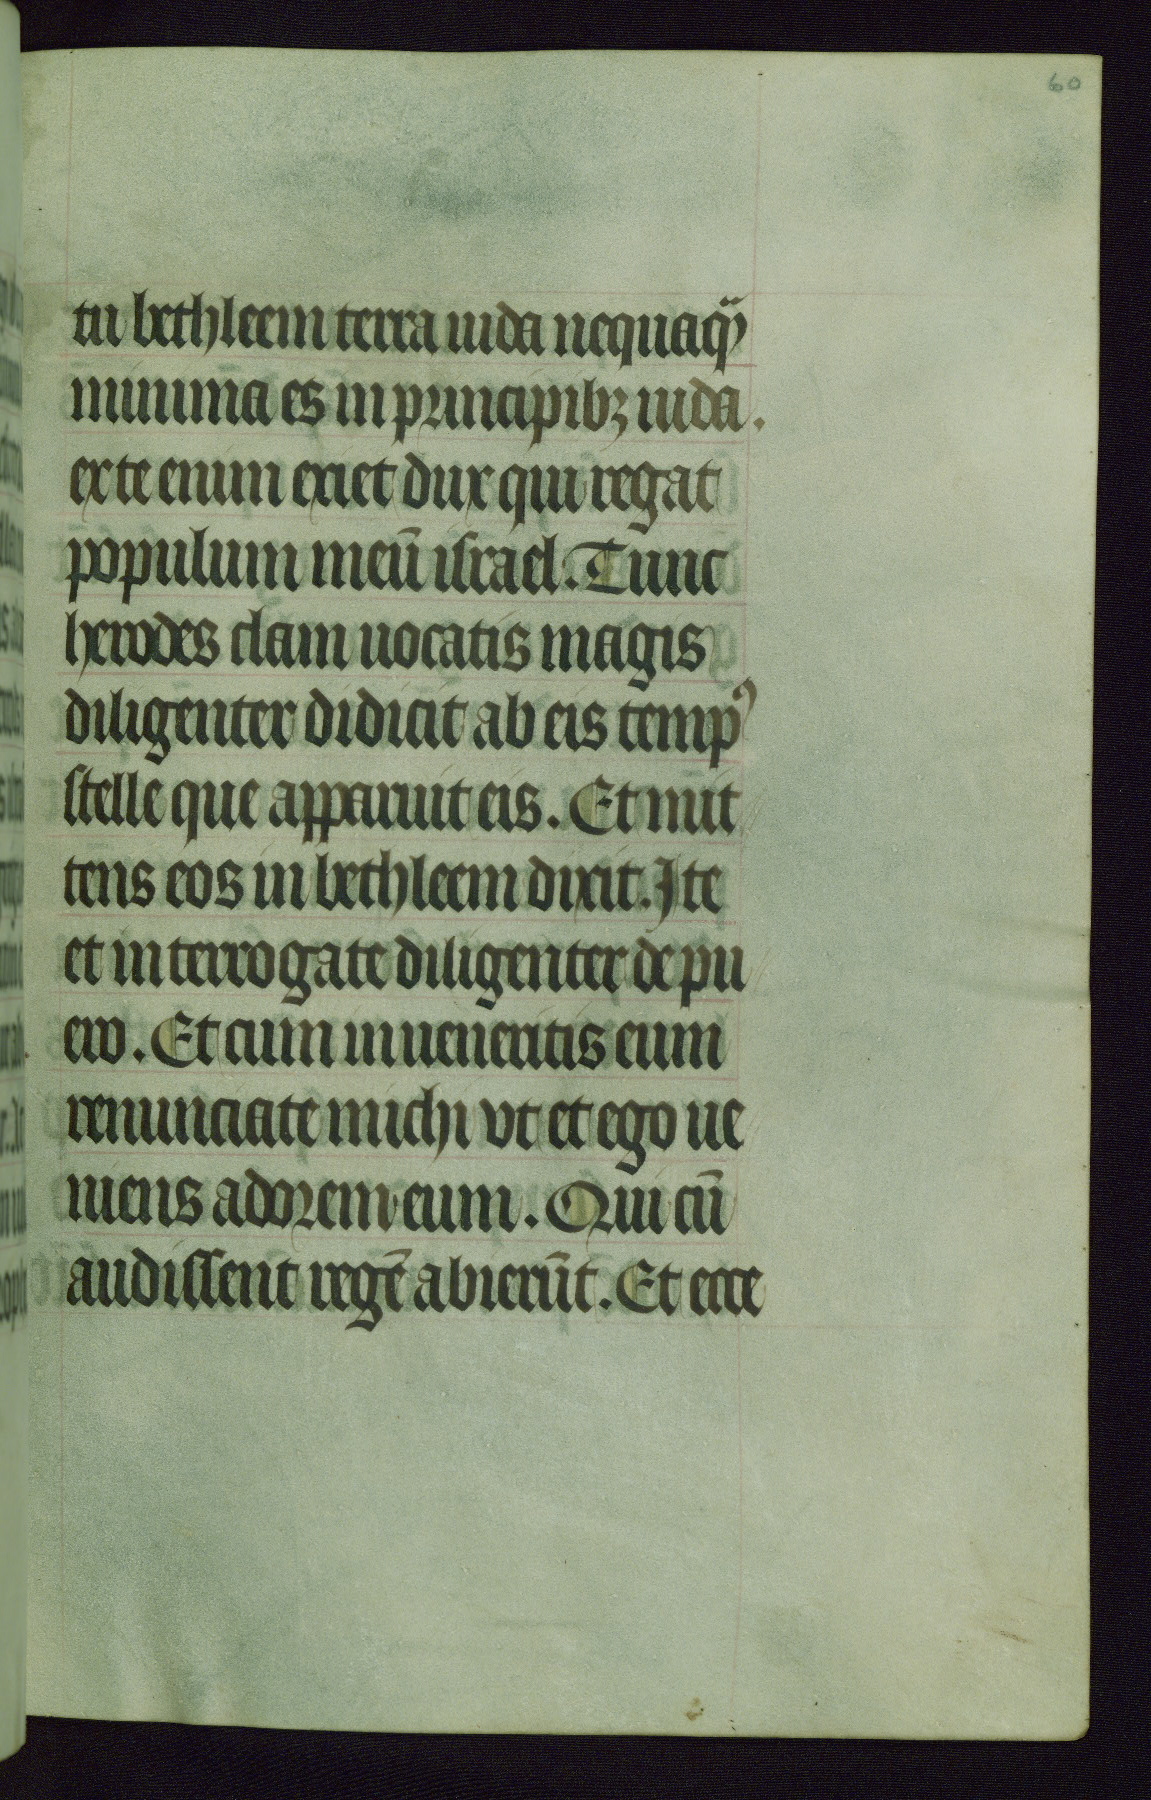 60
tu bethleem terra iuda nequaq̃
minima es in principibꝫ iuda.
ex te enim exiet dux qui regat
populum meū israel. Tunc
herodes clam uocatis magis
diligenter didicit ab eis tempꝰ
stelle que apparuit eis. Et mit
tens eos in bethleem dixit. Ite
et interrogate diligenter de pu
ero. Et cum inueneritis eum
renunciate michi vt et ego ue
niens adorem eum. Qui cū
audissent regē abierūt. Et ecce